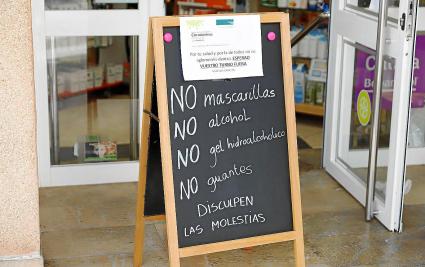 Por tu salud y por la de todos no os
aglomeréis dentro ESPERAD
VUESTRO TURNO FUERA
NO mascarillas
NO alcohol
NO gel hidroalcohólico
NO guantes
DISCULPEN
LAS MOLESTIAS